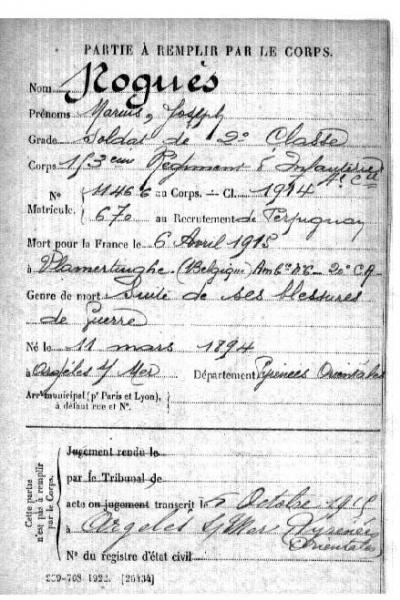 PARTIE À REMPLIR PAR LE CORPS.
Nom Rogues
Prénoms Marius, Joseph
Grade Soldat de 2e Classe
Corps 153eme Régiment d'Infanterie 4e Cie
N° Matricule. { 11466 au Corps. — Cl. 1914
670 au Recrutement de Perpignan
Mort pour la France le 6 Avril 1915
à Vlamertinghe (Belgique) Amb. 20e C.A
Genre de mort Suite de ses blessures
de Guerre
Né le 11 mars 1894
à Argelès s/ Mer Département Pyrénées Orientales
Arrt municipal (pr Paris et Lyon), à défaut rue et N°.
Cette partie n'est pas à remplir par le Corps.
Jugement rendu le
par le Tribunal de
acte ou jugement transcrit le 5 Octobre 1915
à Argelès s/ Mer Pyrénées
Orientales
N° du registre d'état civil
229-708 1922. [26434]